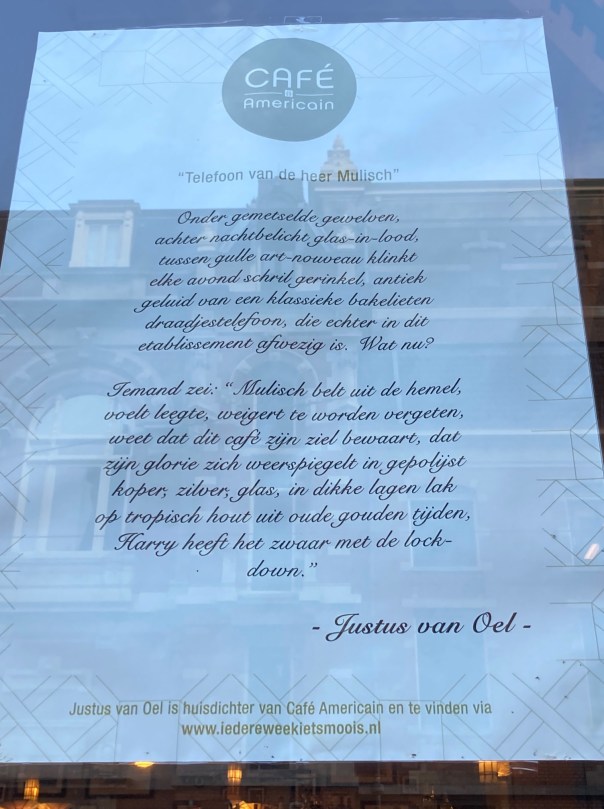 CAFÉ
Americain
“Telefoon van de heer Mulisch”
Onder gemetselde gewelven,
achter nachtbelicht glas-in-lood,
tussen gulle art-nouveau klinkt
elke avond schril gerinkel, antiek
geluid van een klassieke bakelieten
draadjestelefoon, die echter in dit
etablissement afwezig is. Wat nu?
Iemand zei: “Mulisch belt uit de hemel,
voelt leegte, weigert te worden vergeten,
weet dat dit café zijn ziel bewaart, dat
zijn glorie zich weerspiegelt in gepolijst
koper, zilver, glas, in dikke lagen lak
op tropisch hout uit oude gouden tijden,
Harry heeft het zwaar met de lock-
down.”
- Justus van Oel -
Justus van Oel is huisdichter van Café Americain en te vinden via
www.iedereweekietsmoois.nl